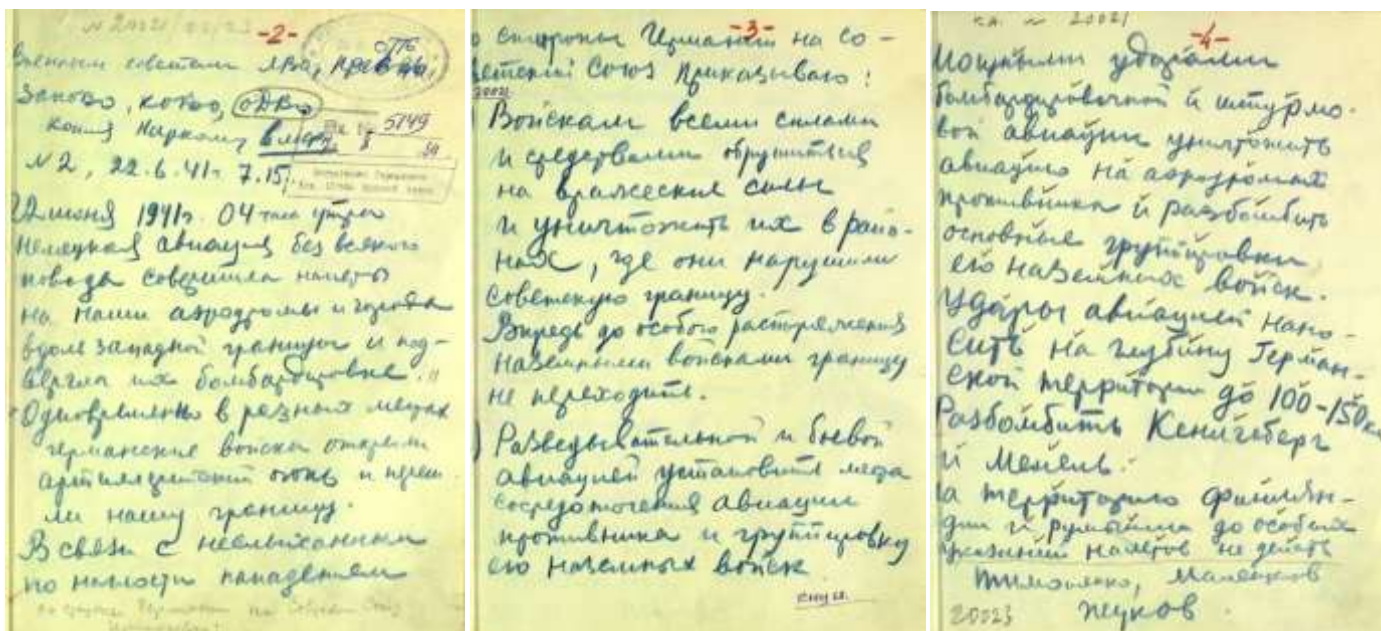 -2-
Военным советам ЛВО, ПрибОВО,
ЗапОВО, КОВО, ОдВО
копия Наркому в.м.ф.
5149
N 2, 22.6.41г. 7.15
22 июня 1941г. 04 часа утра
немецкая авиация без всякого
повода совершила налеты
на наши аэродромы и города
вдоль западной границы и под-
вергла их бомбардировке.
Одновременно в разных местах
германские войска открыли
артиллерийский огонь и переш-
ли нашу границу.
В связи с неслыханным
по наглости нападением
-3-
со стороны Германии на Со-
ветский Союз приказываю:
Войскам всеми силами
и средствами обрушиться
на вражеские силы
и уничтожить их в райо-
нах, где они нарушили
советскую границу.
Впредь до особого распоряжения
наземными войсками границу
не переходить.
Разведывательной и боевой
авиацией установить места
сосредоточения авиации
противника и группировку
его наземных войск
-4-
Мощными ударами
бомбардировочной и штурмо-
вой авиации уничтожить
авиацию на аэродромах
противника и разбомбить
основные группировки
его наземных войск.
Удары авиацией нано-
сить на глубину герман-
ской территории до 100-150 км
Разбомбить Кенигсберг
и Мемель.
На территорию Финлян-
дии и Румынии до особых
указаний налетов не делать
Тимошенко, Маленков
Жуков.
20023